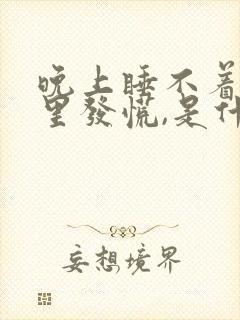 晚上睡不着
里發慌,是什
妄想境界